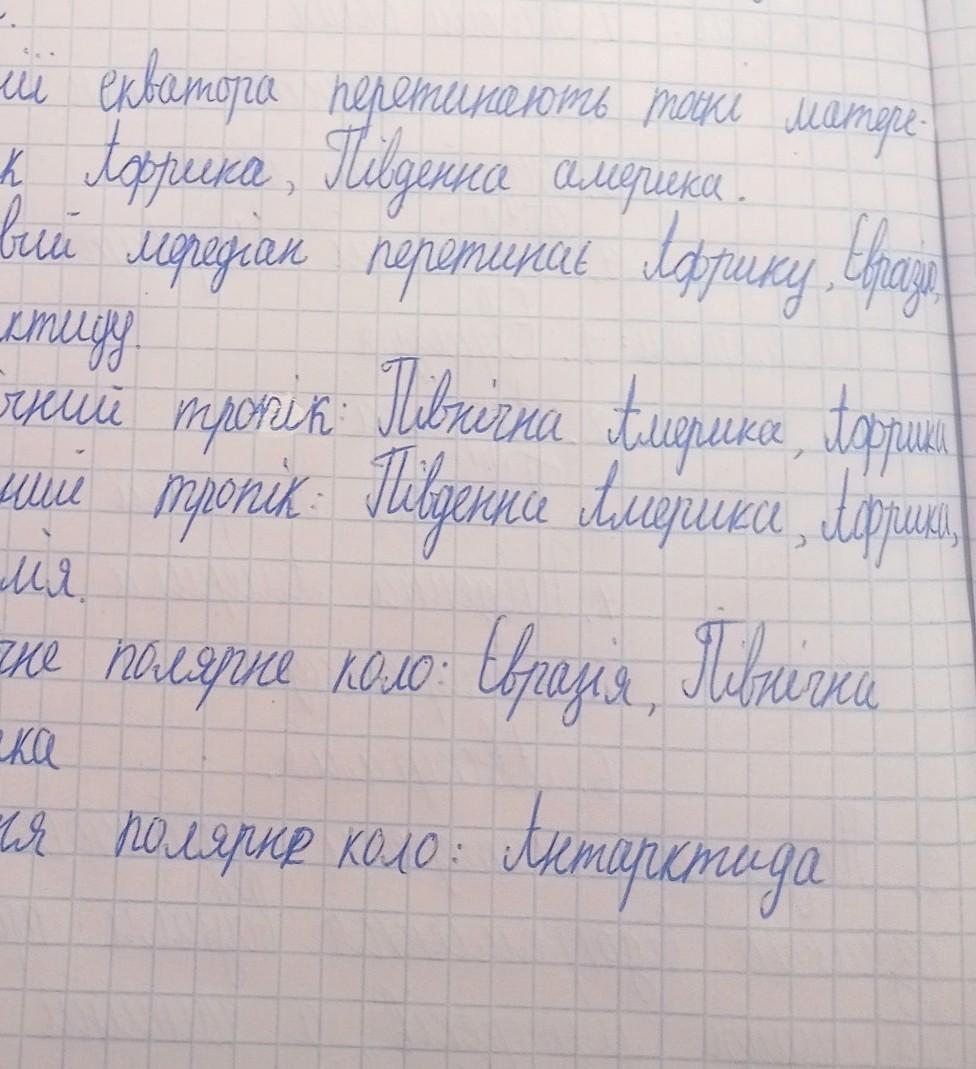 ії екватора перетинають такі матере-
к Африка, Південна америка.
вий мередіан перетинає Африку, Євразію,
ктиду.
чний тропік: Північна Америка, Африка
ний тропік: Південна Америка, Африка,
лія.
чне полярне коло: Євразія, Північна
ка
ня полярне коло: Антарктида